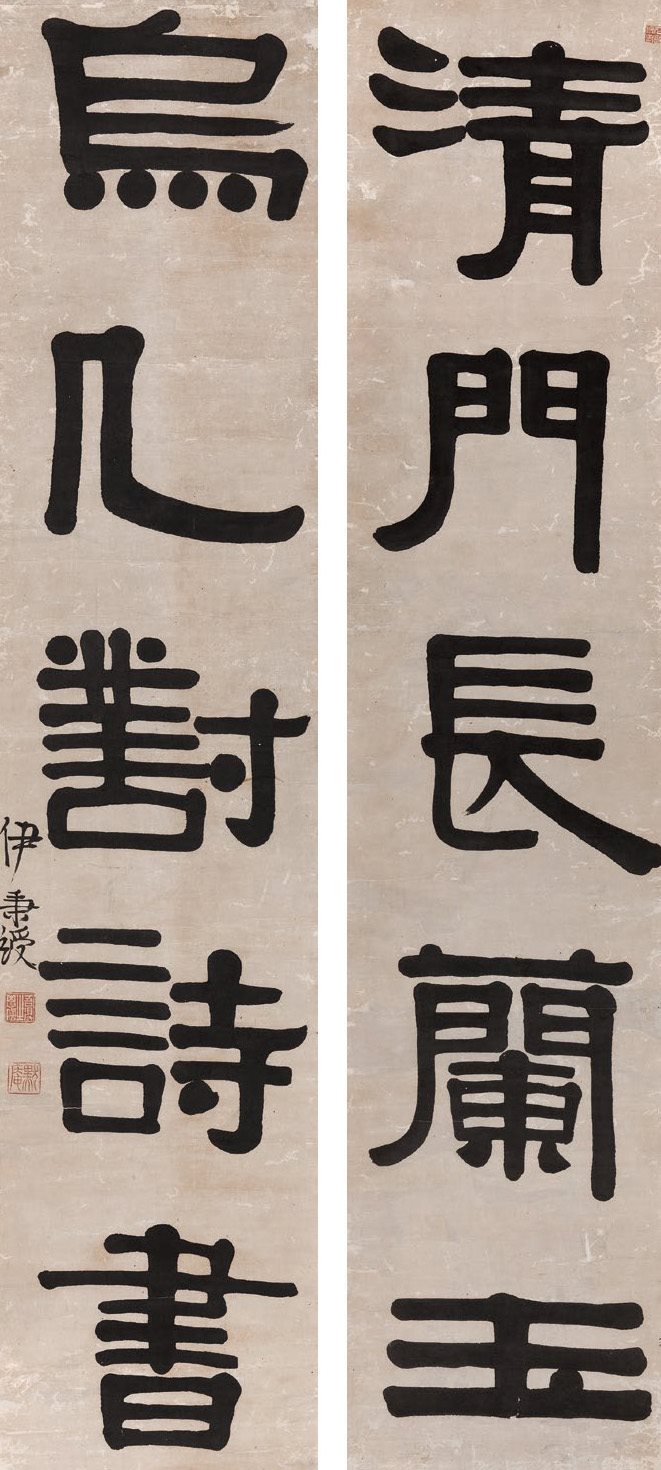 清門長蘭玉
烏几對詩書
伊秉綬
默庵